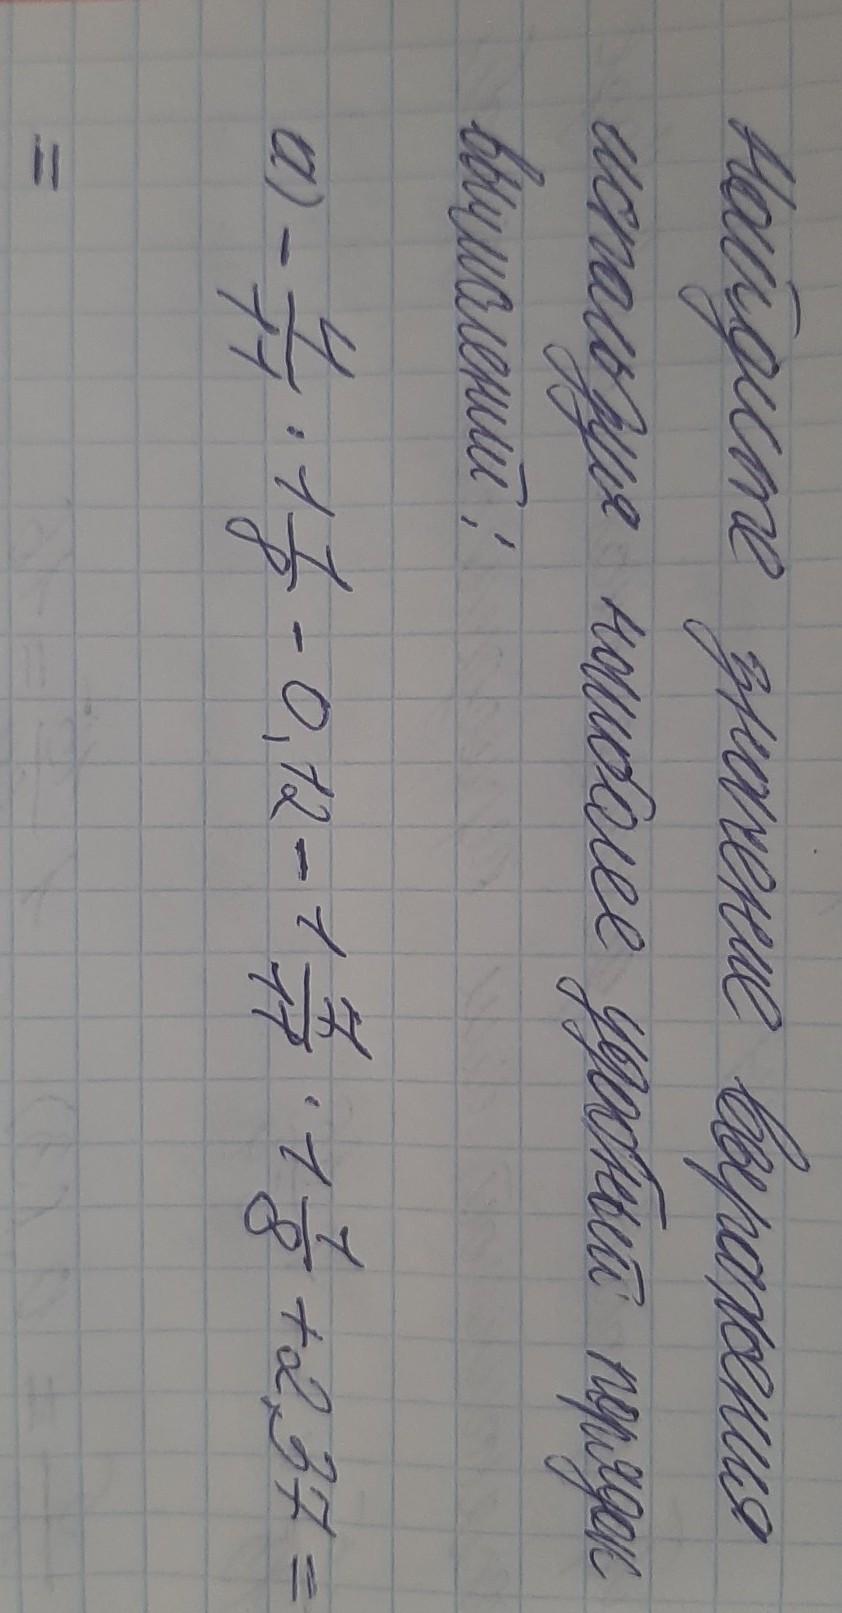 Найдите значение выражения
используя наиболее удобный порядок
вычислений:
а) - 4/11 · 1 1/8 - 0,12 - 1 7/11 · 1 1/8 + 2,37 =
=